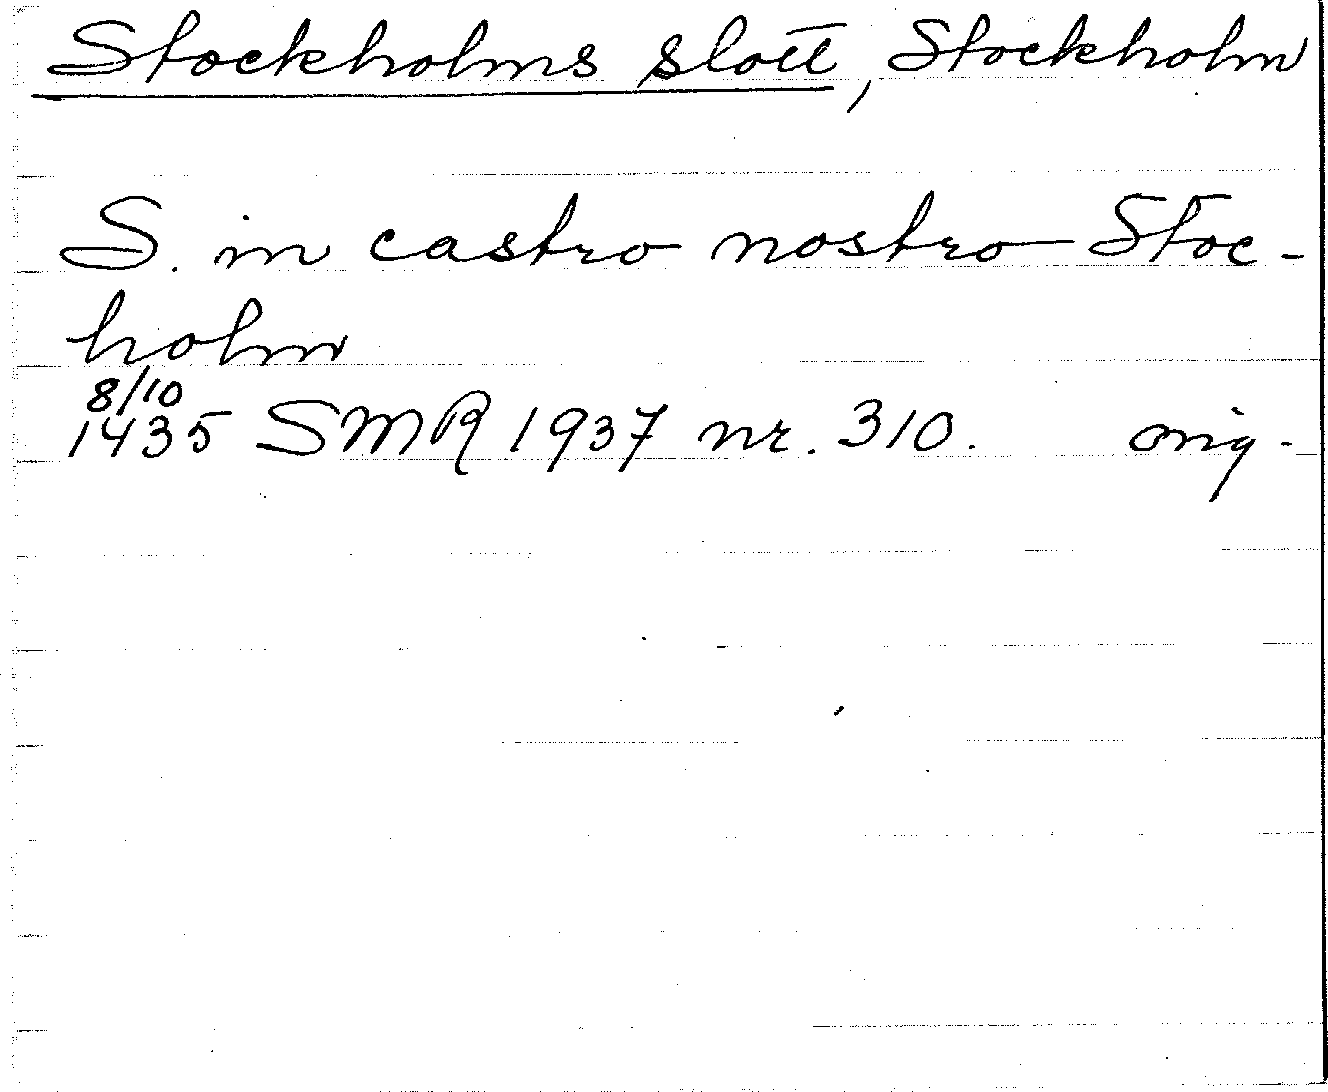 Stockholms slott, Stockholm
S. in castro nostro Stoc-
holm
8/10
1435 SMR 1937 nr. 310. orig.